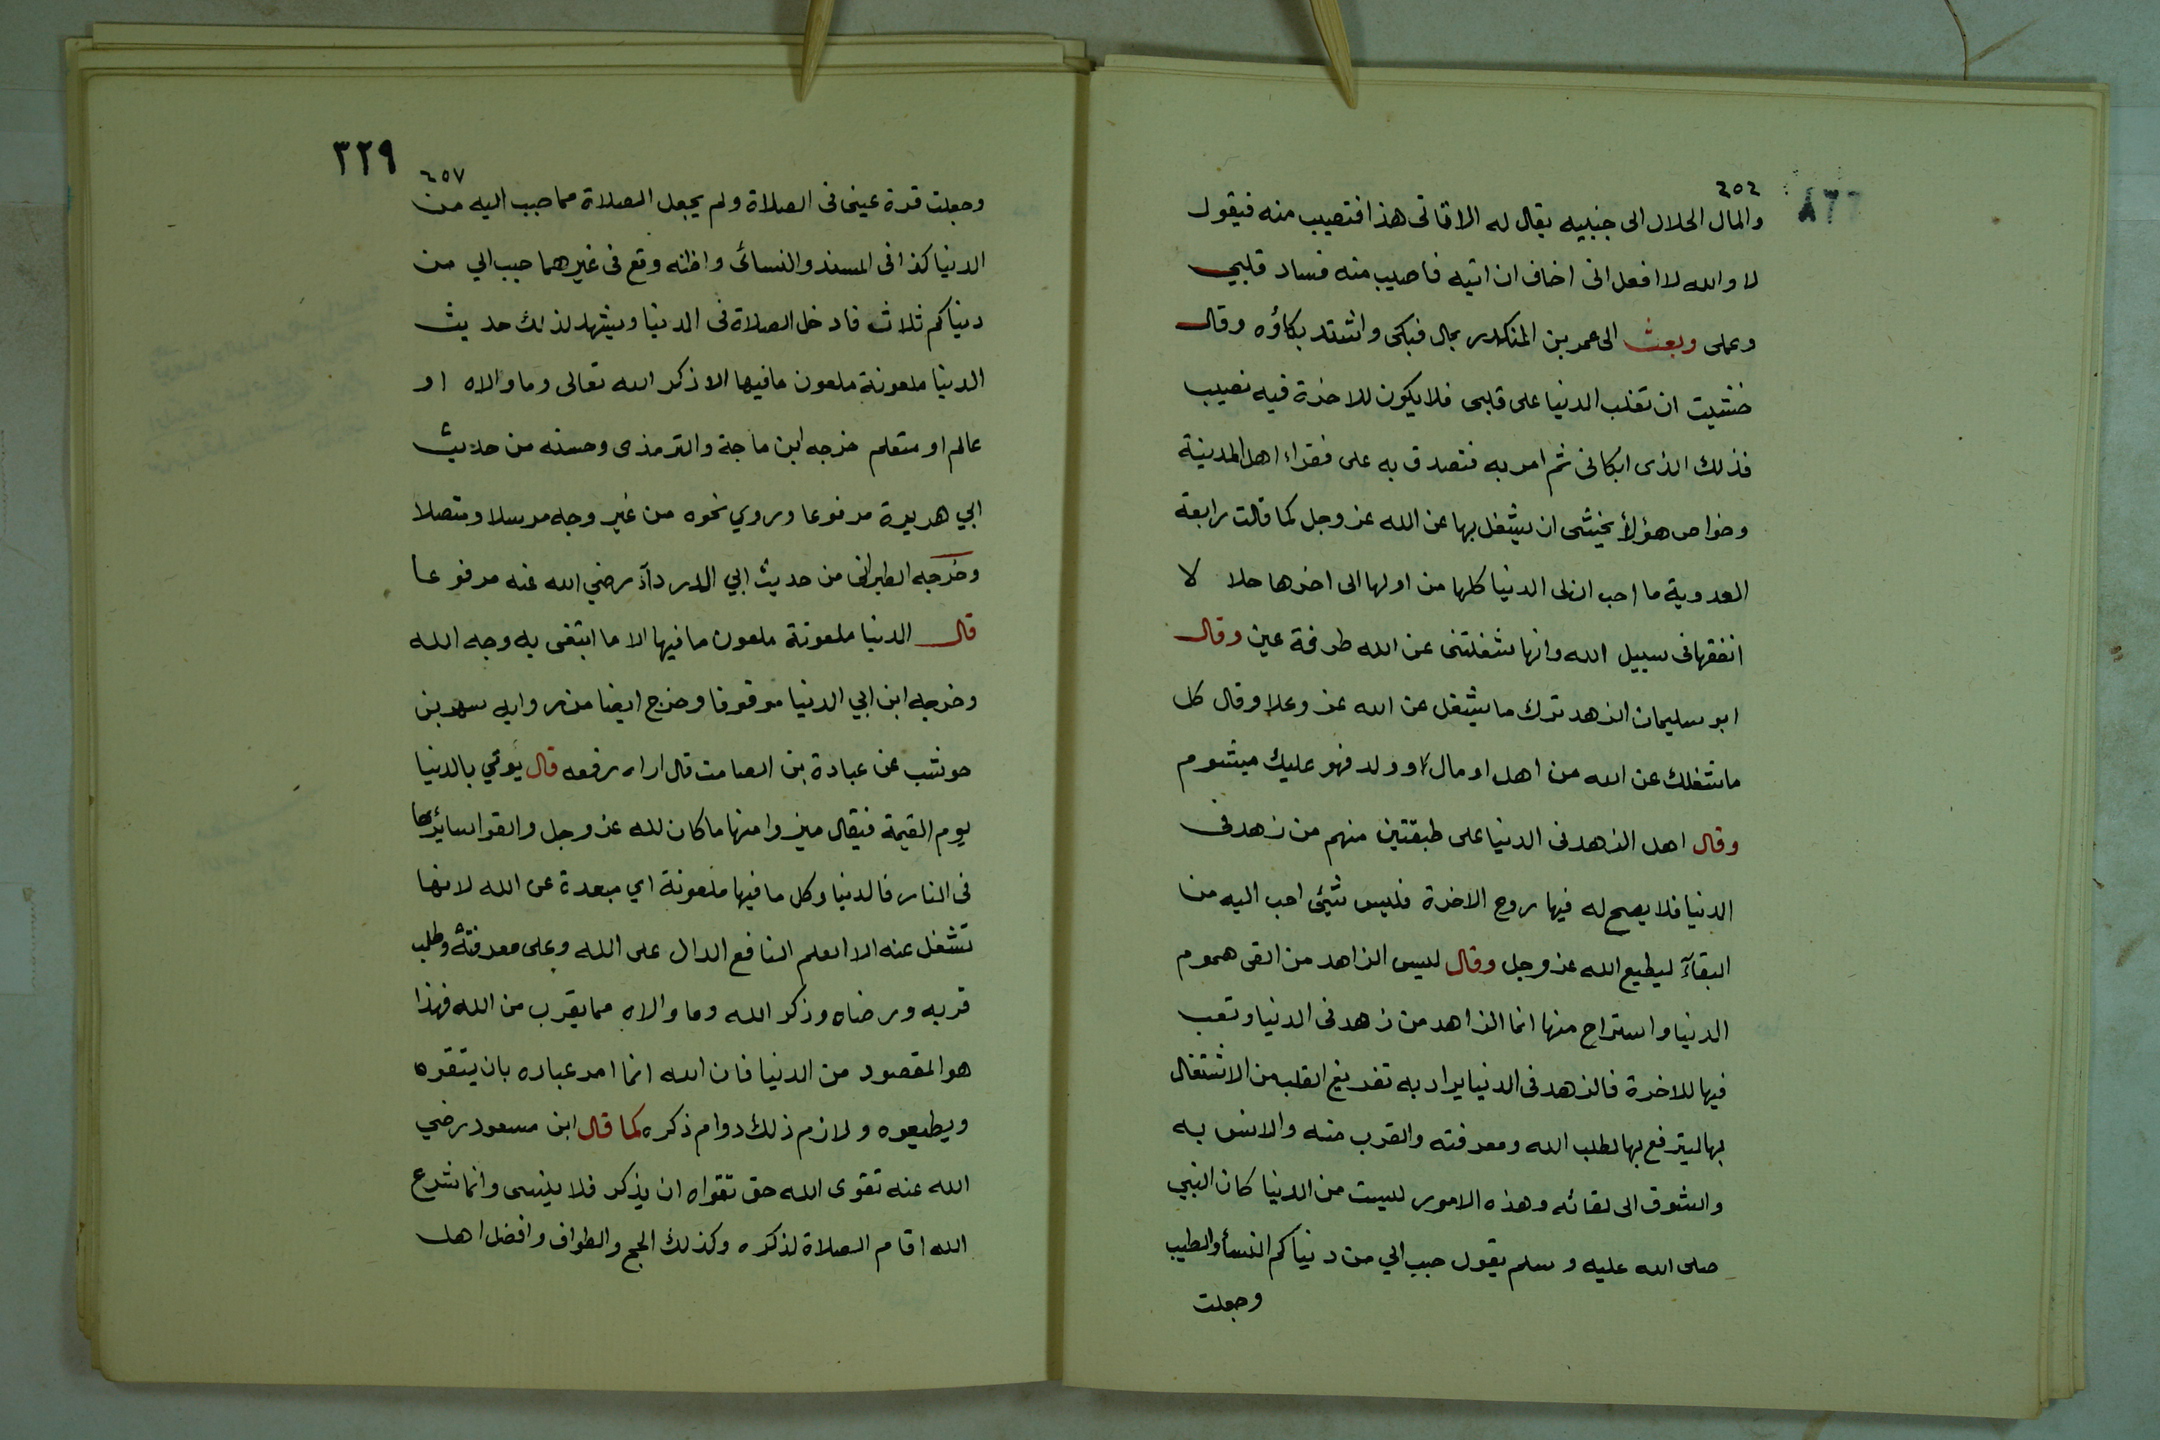 ٤٥٤
والمال الحلال الى جنبيه يقال له الاتاتى هذا فتصيب منه فيقول
لا والله لا افعل انى اخاف ان اتيه فاصيب منه فساد قلبي
وعملى وبعث الى عمر بن المنكدر بمال فبكى واشتد بكاؤه وقال
خشيت ان تغلب الدنيا على قلبى فلا يكون للاخرة فيه نصيب
فذلك الذى ابكانى ثم امر به فتصدق به على فقراء اهل المدينة
وخواص هؤلأ يخشى ان يشغل بها عن الله عز وجل كما قالت رابعة
العدوية ما احب ان لى الدنيا كلها من اولها الى اخرها حلا لا
انفقها فى سبيل الله وانها شغلتنى عن الله طرفة عين وقال
ابو سليمان الزهد ترك ما يشغل عن الله عز وعلا وقال كل
ما شغلك عن الله من اهل او مال او ولد فهو عليك ميشوم
وقال اهل الزهد فى الدنيا على طبقتين منهم من زهد فى
الدنيا فلا يصح له فيها روح الاخرة فليس شيئى احب اليه من
البقآء ليطيع الله عز وجل وقال ليس الزاهد من القى هموم
الدنيا واستراح منها انما الزاهد من زهد فى الدنيا وتعب
فيها للاخرة فالزهد فى الدنيا يراد به تفريغ القلب من الاشتغال
بها ليترفع بها لطلب الله ومعرفته والقرب منه والانس به
والشوق الى لقائه وهذه الامور ليست من الدنيا كان النبي
صلى الله عليه وسلم يقول حبب الي من دنياكم النسأ والطيب
وجعلت
٣٢٩
٤٥٧
وجعلت قرة عينى فى الصلاة ولم يجعل الصلاة مما حبب اليه من
الدنيا كذا فى المسند والنسائى واظنه وقع فى غيرهما حبب الي من
دنياكم ثلاث فادخل الصلاة فى الدنيا ويشهد لذلك حديث
الدنيا ملعونة ملعون ما فيها الا ذكر الله تعالى وما والاه او
عالم او متعلم خرجه ابن ماجة والترمذى وحسنه من حديث
ابي هريرة مرفوعا وروي نحوه من غير وجه مرسلا ومتصلا
وخرجه الطبرانى من حديث ابي الدردآء رضي الله عنه مرفوعا
قال الدنيا ملعونة ملعون ما فيها الا ما ابتغى به وجه الله
وخرجه ابن ابي الدنيا موقوفا وخرج ايضا من رواية شهر بن
حوشب عن عبادة بن الصامت قال اراه رفعه قال يوتي بالدنيا
يوم القيمة فيقال ميزوا منها ما كان لله عز وجل والقوا سائرها
فى النار فالدنيا وكل ما فيها ملعونة اي مبعدة عن الله لانها
تشغل عنه الا العلم النافع الدال على الله وعلى معرفته وطلب
قربه ورضاه وذكر الله وما والاه مما يقرب من الله فهذا
هو المقصود من الدنيا فان الله انما امر عباده بان يتقوه
ويطيعوه ولازم ذلك دوام ذكره كما قال ابن مسعود رضي
الله عنه تقوى الله حق تقواه ان يذكر فلا ينسى وانما شرع
الله اقام الصلاة لذكره وكذلك الحج والطواف وافضل اهل